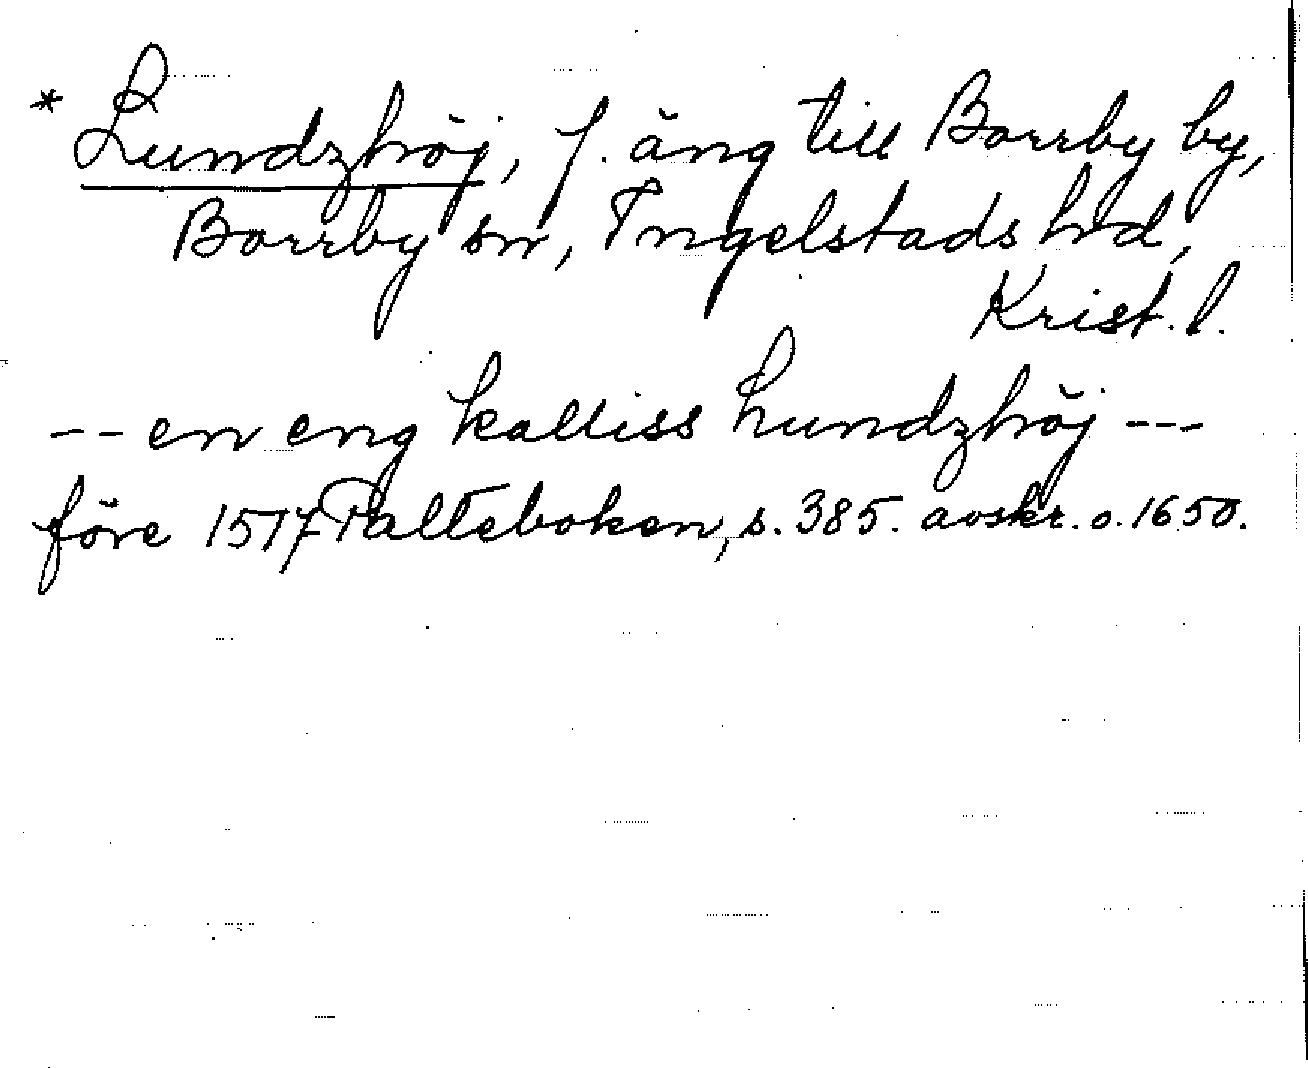 * Lundzhöj, f. äng till Borrby by,
Borrby sn, Ingelstads hd,
Krist. l.
-- en eng kalliss hundzhöj ---
före 1517 Palteboken, s. 385. avskr. o. 1650.